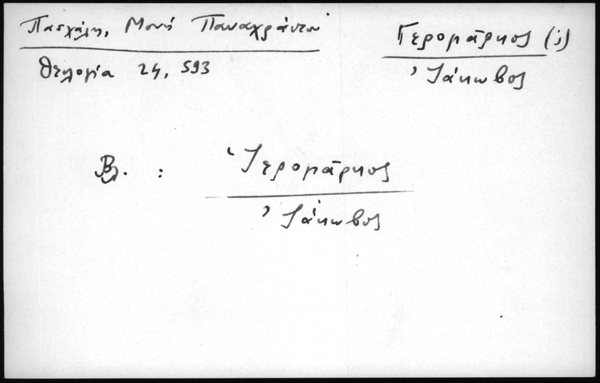 Πασχάλη, Μονή Παναχράντου
Θεολογία 24, 593
Γερομάρκος (ἱ)
Ἰάκωβος
Βλ. :
Ἱερομάρκος
Ἰάκωβος